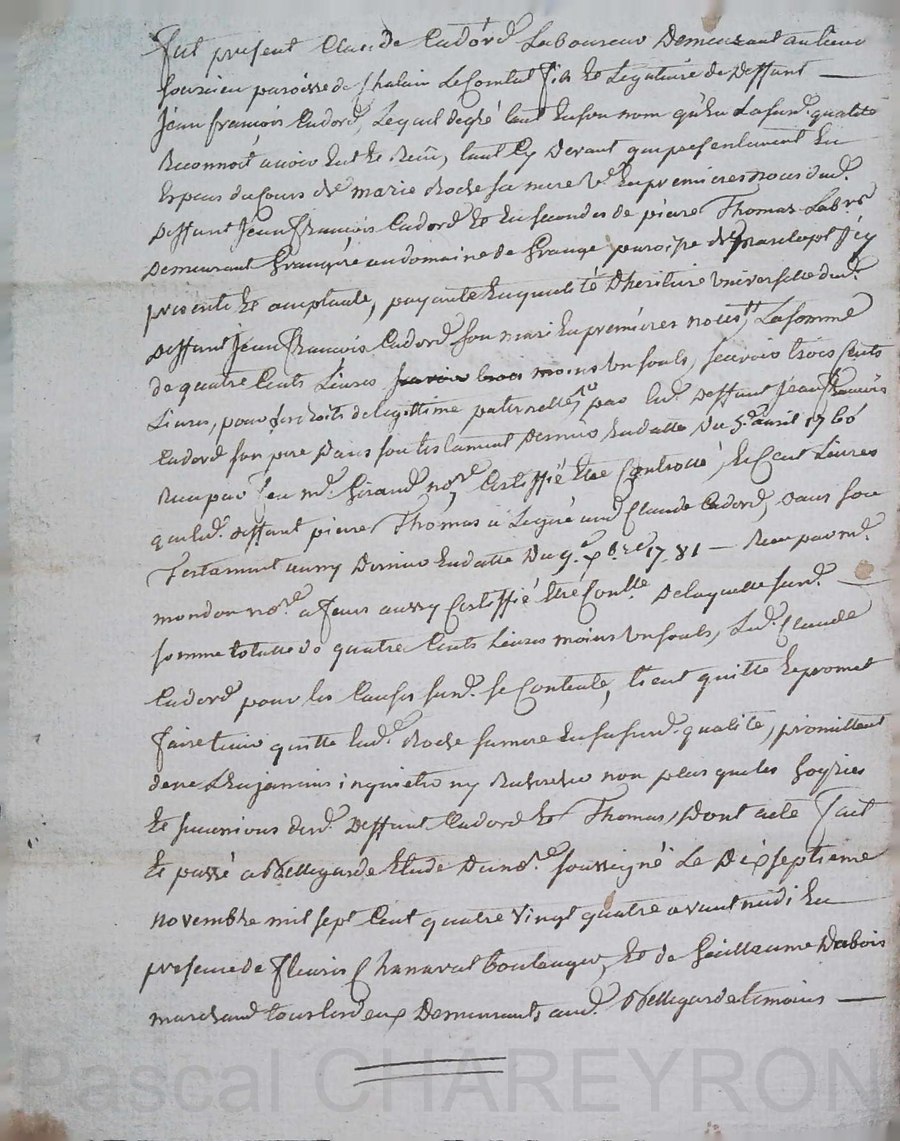 fut present Claude Cadord Laboureur Demeurant au lieu
paroisse de Chalain Le Comtal fils et Legataire de deffunt
Jean francois Cadord, Lequel degré tant en son nom qu'en La susd. qualité
Reconnoit avoir Eut et Reçu, tant Cy Devant que presentement En
Especes du Cours de marie Roche sa mere ve. En premieres noces dud.
deffunt Jean francois Cadord Et En secondes de pierre Thomas Labr
demeurant Grangère au domaine de Grange paroisse de Icy
presente Et acceptante, payante En qualité D'heritiere universelle dud.
deffunt Jean francois Cadord son mari En premières noces, La somme
de quatre Cents Livres moins un souls, sçavoir trois Cents
Livres, pour ses droits de legittime paternelle par Led. deffunt Jean francois
Cadord son pere Dans son testament dernier En datte du 5e. avril 1760
Reçu par feu me. Giraud nore, Certiffié Etre Controllé, Et Cent Livres
que led. deffunt pierre Thomas a Legué aud. Claude Cadord, Dans son
Testament aussy Dernier En datte Du 9e. xbre 1781 — Reçu par me.
mondon nore. a feurs aussy Certiffié Etre Contlé. De laquelle susd.
somme totalle de quatre Cents Livres moins un souls, Led. Claude
Cadord pour les Causes susd. se Contente, tient quitte Et promet
faire tenir quitte Lad. Roche sa mere En sa susd. qualité, promettant
de ne L'En jamais inquieter ny Rechercher non plus que les hoyries
Et successions desd. deffunt Cadord Et Thomas, Dont acte fait
Et passé a Bellegarde Etude du nore. soussigné Le Dix septieme
novembre mil sept Cent quatre vingt quatre avant midi En
presence de fleuris Chanavat boulanger, Et de Guillaume Dubois
marchand tous les deux Demeurants aud. Bellegarde temoins —
Pascal CHAREYRON